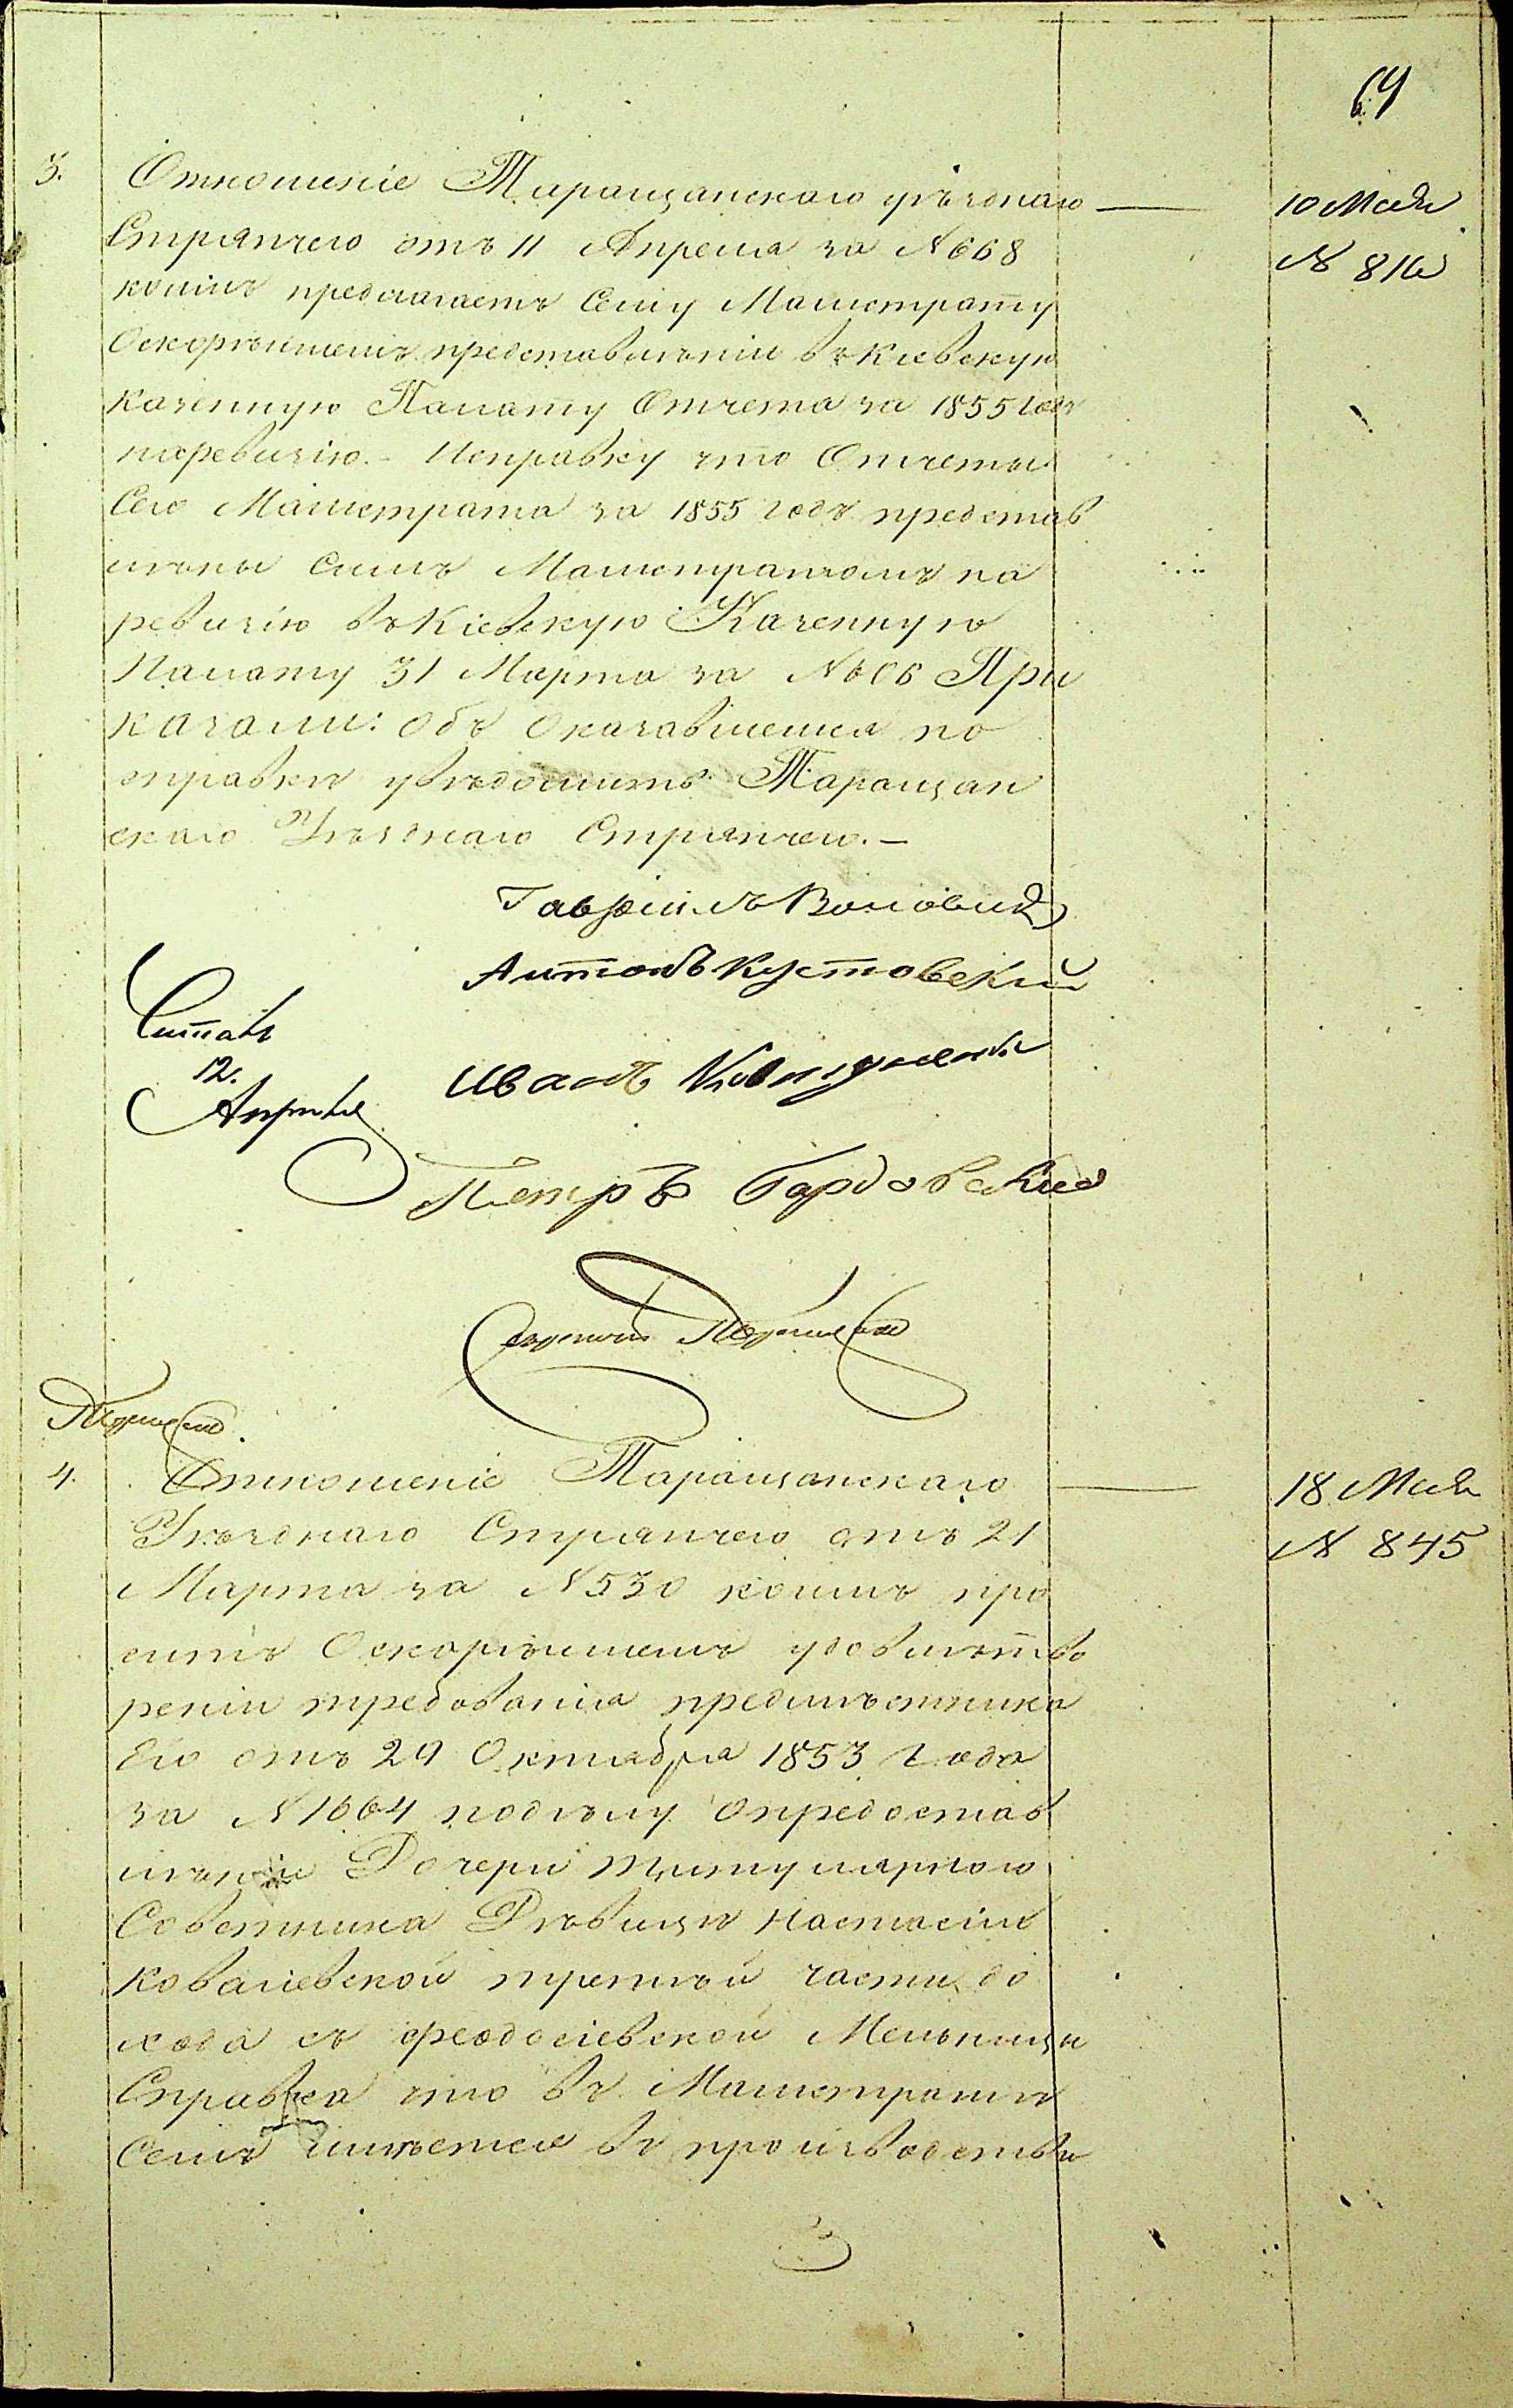 64
3.
Отношеніе Таращанскаго уѣзднаго
10 Мая
Стряпчего отъ 11 Апреля за N 668
N 816
коимъ предлагаетъ Сему Магистрату
Оскорѣишемъ представлѣніи въ Кіевскую
казенную Палату Отчета за 1855 годъ
наревизію. - Исправку что Отчеты
Сего Магистрата за 1855 годъ представ
лѣны Симъ Магистратомъ на
ревизію въ Кіевскую Казенную
Палату 31 Марта за N 606 При
казали: Объ Оказавшемся по
справки увѣдомить Таращан
скаго Уѣзднаго Стряпчего. -
Гавріилъ
Антонъ Кустовскій
Читалъ
12.
Апрѣля
Иванъ
Петръ Гордовский
4.
Отношеніе Таращанскаго
18 Мая
Уѣзднаго Стряпчего отъ 21
N 845
Марта за N 530 коимъ про
ситъ Оскорѣишемъ удовлѣтво
реніи требованія предмѣстника
Его отъ 29 Октября 1853 года
за N 1664 подѣлу Опредостав
лѣніи Дочери титулярного
Советника Дѣвицы Настасіи
Ковалевской третьѣй части до
хода съ феодосіевской Мельницы
Справка что въ Магистратѣ
Семъ имѣется въ производстви